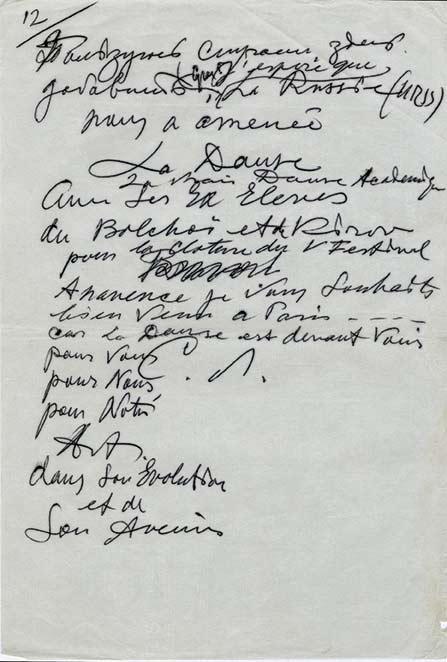 12/
j'espère que
La Russie (URSS)
nous a amené
La Danse
La vrais Danse Académique
Avec Les Eleves
du Bolchoï et de Kirov
pour la cloture du V Festival
A havence je vous souhaite
bien venu a Paris - - - -
car la Danse est devant Vous
pour Vous
pour Nous
pour Notre
Art.
dans son Evolution
et de
Son Avenir